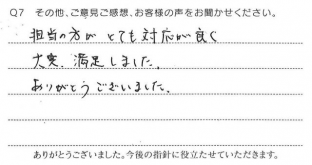 Q7 その他、ご意見ご感想、お客様の声をお聞かせください。
担当の方が とても対応が良く
大変、満足しました。
ありがとうございました。
ありがとうございました。今後の指針に役立たせていただきます。